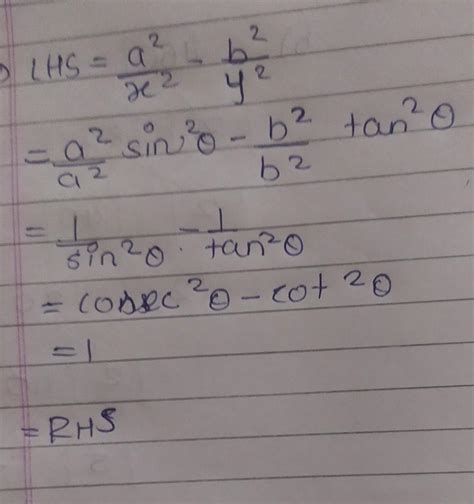 LHS = a²/x² - b²/y²
= a²/a² sin²θ - b²/b² tan²θ
= 1/sin²θ - 1/tan²θ
= cosec²θ - cot²θ
= 1
= RHS